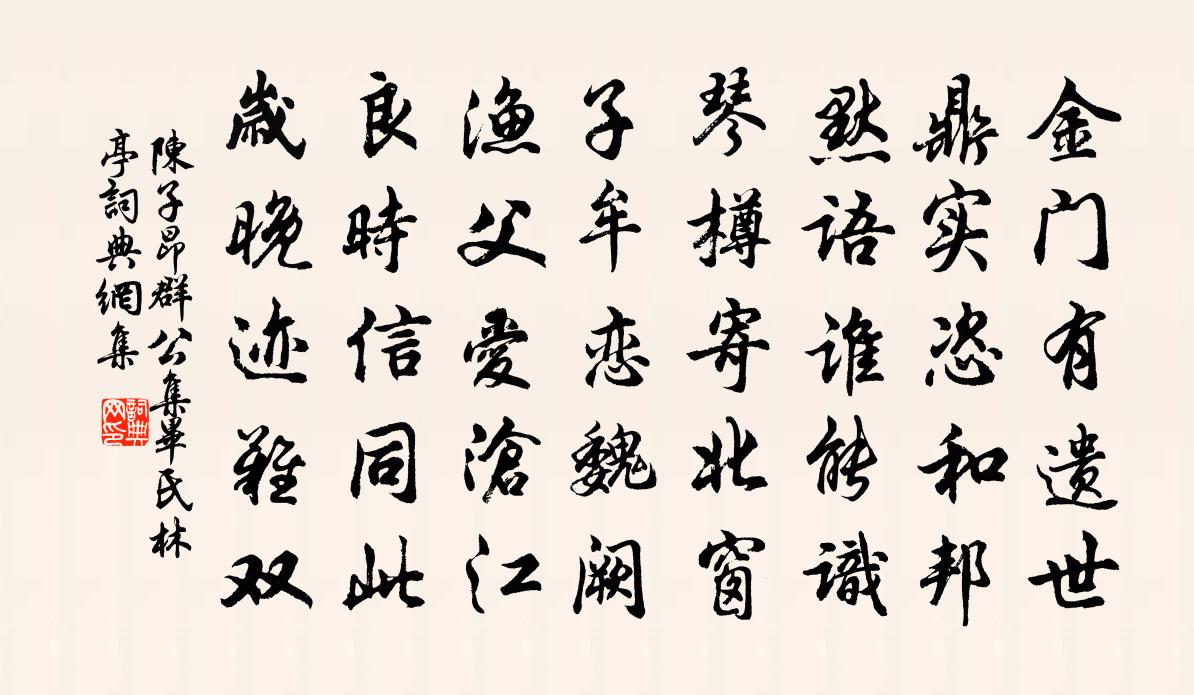 金门有遗世
鼎实恣和邦
默语谁能識
琴樽寄北窗
子牟恋魏阙
渔父愛滄江
良時信同此
歳晚迹難双
陳子昂群公集畢氏林
亭詞典網集
詞典
网印